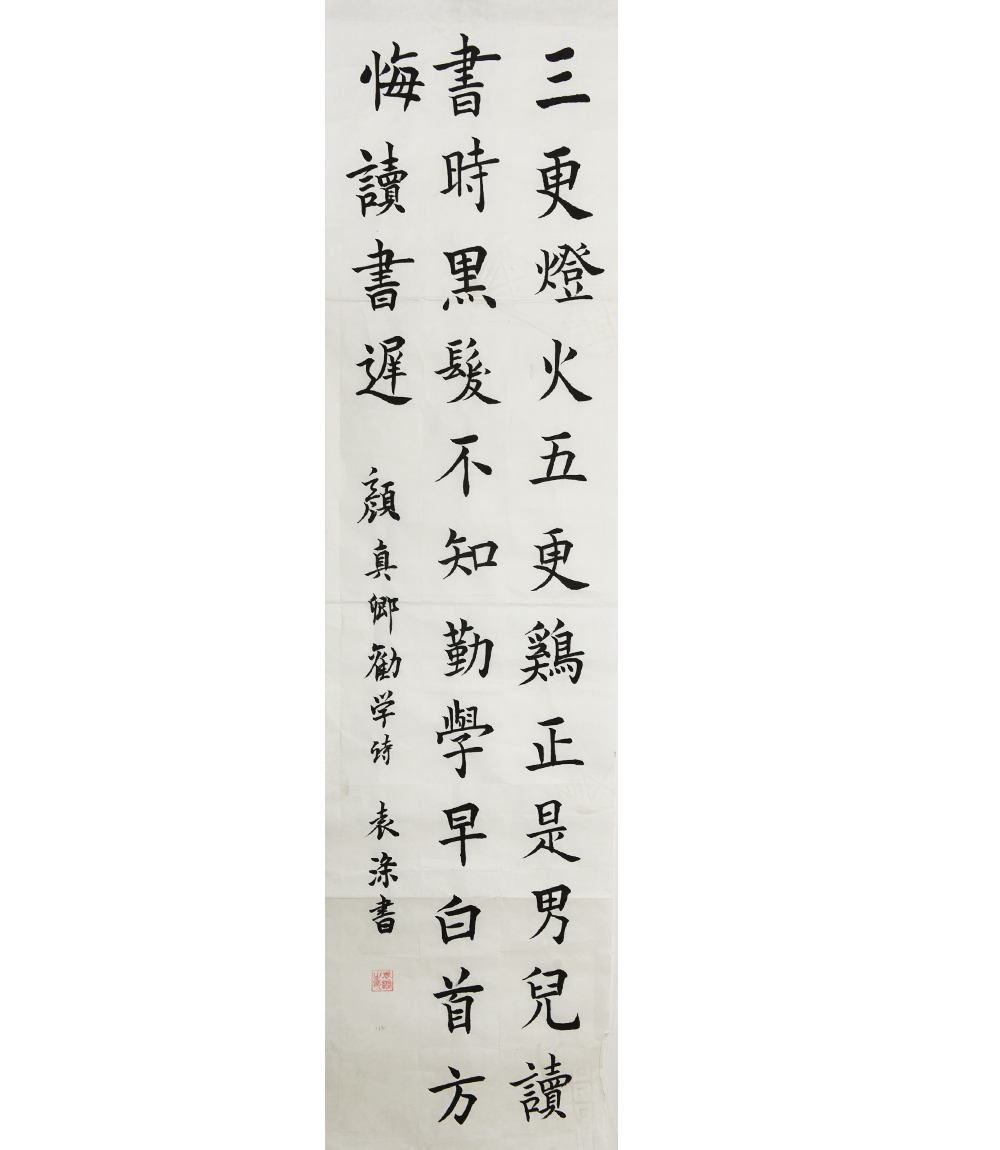 三更燈火五更鷄正是男兒讀
書時黑髮不知勤學早白首方
悔讀書遲 顏真卿勸学诗 袁滌書